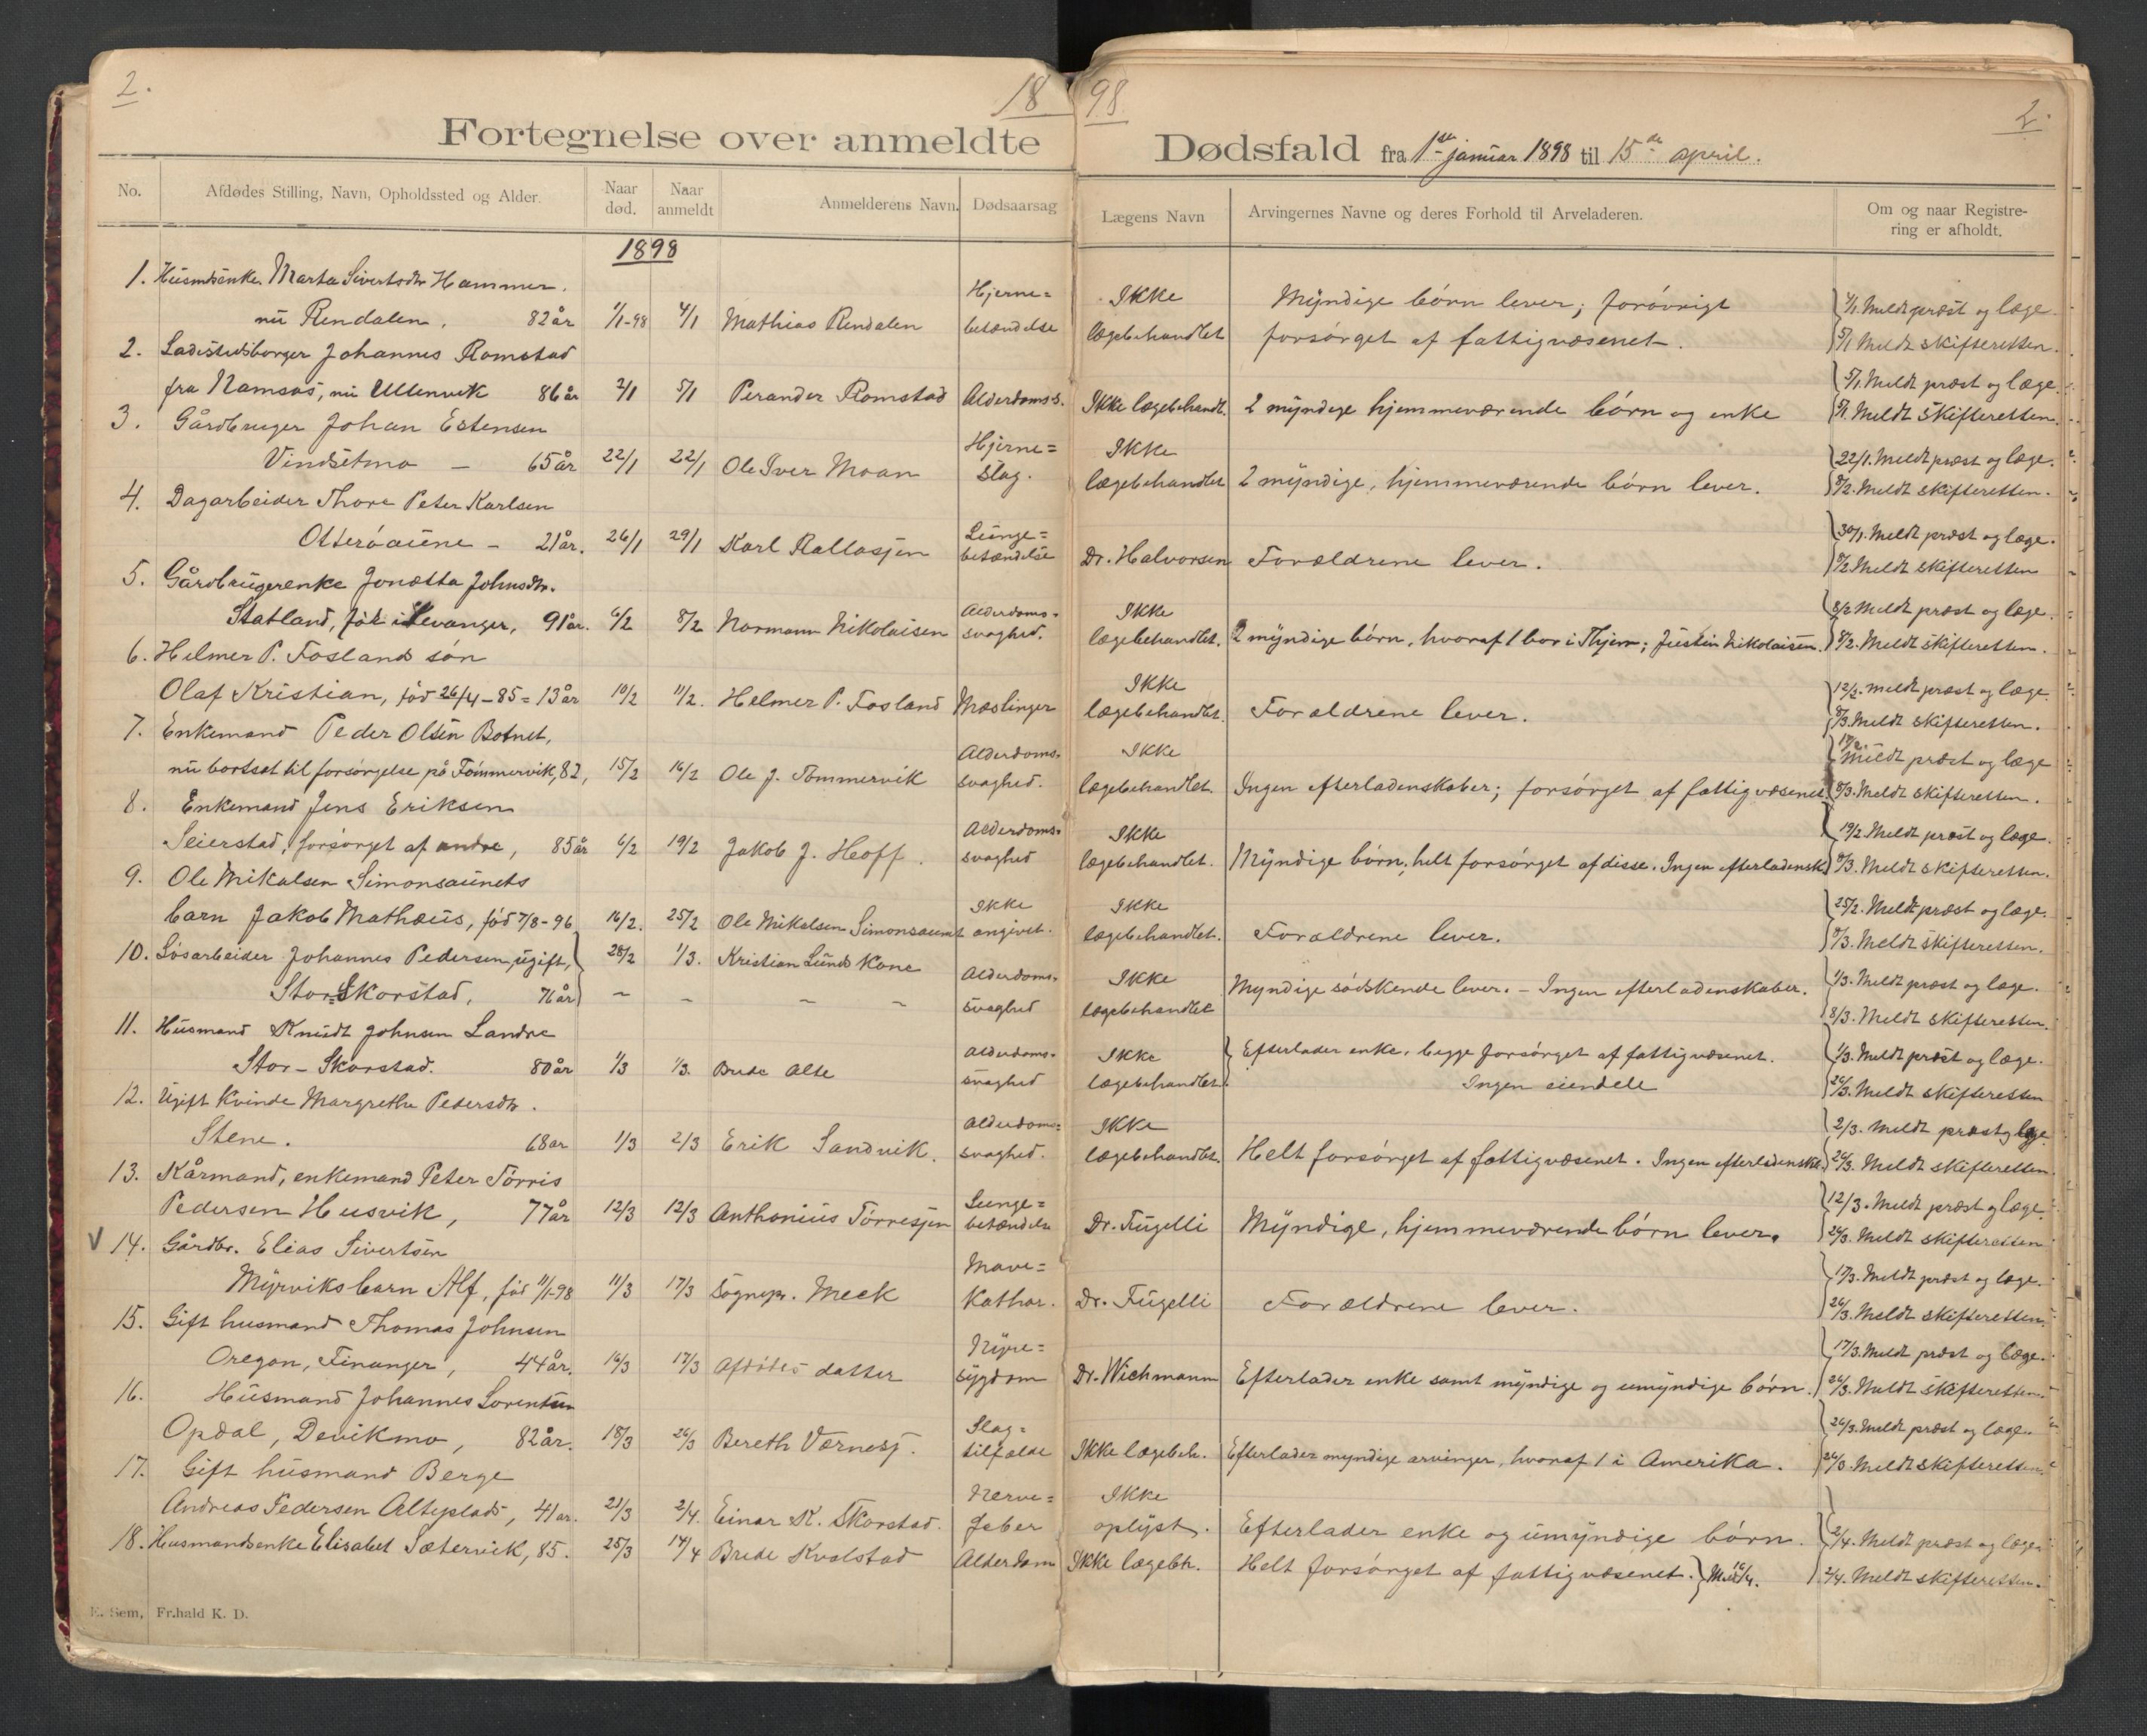 2.
18 98
2.
Fortegnelse over anmeldte Dødsfald fra 1ste januar 1898 til 15de april.
No. Afdødes Stilling, Navn, Opholdssted og Alder. Naar død. Naar anmeldt Anmelderens Navn. Dødsaarsag Lægens Navn Arvingernes Navne og deres Forhold til Arveladeren. Om og naar Registrering er afholdt.
1898
1. Husmdsenke Marta Sivertsdtr Hammer. Hjerne= Ikke Myndige børn lever; forøvrigt 4/1. Meldt præst og læge.
nu Rendalen. 82 år 1/1-98 4/1 Mathias Rendalen betændelse lægebehandlet forsørget af fattigvæsenet. 5/1 Meldt skifteretten.
2. Ladestedsborger Johannes Romstad 5/1. Meldt præst og læge.
fra Namsos, nu Ullenvik 86 år 2/1 5/1 Perander Romstad Alderdoms.s. Ikke lægebehandt. 2 myndige hjemmeværende børn og enke 5/1. Meldt skifteretten.
3. Gårdbruger Johan Estensen Hjerne= Ikke 22/1. Meldt præst og læge.
Vindsetmo – 65 år 22/1 22/1 Ole Iver Moan slag. lægebehandlet 2 myndige, hjemmeværende børn lever. 8/2. Meldt skifteretten.
4. Dagarbeider Thore Peter Karlsen Lunge= 30/1. Meldt præst og læge.
Otterøaune – 21 år. 26/1 29/1 Karl Rallasjen betændelse Dr. Halvorsen Forældrene lever. 8/2 Meldt skifteretten
5. Gårdbrugerenke Jonetta Johnsdtr. Alderdoms- Ikke 8/2 Meldt præst og læge.
Statland, født i Levanger, 91 år. 6/2 8/2 Normann Nikolaisen svaghed. lægebehandlet. 2 myndige børn, hvoraf 1 bor i Thjem; Justin Nikolaisen. 8/2. Meldt skifteretten.
6. Helmer P. Foslands søn Ikke 12/2. Meldt præst og læge
Olaf Kristian, fød 26/4-85 = 13 år 10/2 11/2. Helmer P. Fosland Mæslinger lægebehandlet. Forældrene lever. 8/3. Meldt skifteretten.
7. Enkemand Peder Olsen Botnet, Alderdoms- Ikke 17/2. Meldt præst og læge
nu bortsat til forsørgelse på Tømmervik, 82, 15/2 16/2 Ole J. Tømmervik svaghed. lægebehandlet. Ingen efterladenskaber; forsørget af fattigvæsenet. 8/3. Meldt skifteretten.
8. Enkemand Jens Eriksen Alderdoms- Ikke 19/2. Meldt præst og læge.
Seierstad, forsørget af andre, 85 år 6/2 19/2 Jakob J. Hoff. svaghed lægebehandlet. Myndige børn, helt forsørget af disse. Ingen efterladensk. 8/3. Meldt skifteretten.
9. Ole Mikalsen Simonsaunets Ikke Ikke 25/2. Meldt præst og læge.
barn Jakob Mathæus, fød 7/8-96 16/2. 25/2 Ole Mikalsen Simonsaunet angivet. lægebehandlet. Forældrene lever. 8/3. Meldt skifteretten.
10. Løsarbeider Johannes Pedersen, ugift, 28/2 1/3. Kristian Lunds Kone Alderdoms- Ikke Myndige sødskende lever. – Ingen efterladenskaber. 1/3. Meldt præst og læge.
Stor-Skorstad, 76 år – – – – svaghed lægebehandlet 8/3. Meldt skifteretten.
11. Husmand Knudt Johnsen Landre Alderdoms- Ikke Efterlader enke, begge forsørget af fattigvæsenet. 1/3. Meldt præst og læge.
Stor-Skorstad. 80 år 1/3 1/3. Brede Alte svaghed lægebehandlet. Ingen eiendele 26/3. Meldt skifteretten
12. Ugift Kvinde Margrethe Pedersdtr. Alderdoms= Ikke 2/3. Meldt præst og læge
Stene. 68 år 1/3 2/3 Erik Sandvik. svaghed. lægebehandlet. Helt forsørget af fattigvæsenet. Ingen efterladensk. 26/3. Meldt skifteretten.
13. Kårmand, enkemand Peter Tørris Lunge= 12/3. Meldt præst og læge.
Pedersen Husvik, 77 år 12/3 12/3 Anthonius Tørresjen betændelse Dr. Fugelli Myndige, hjemmeværende børn lever. 26/3. Meldt skifteretten
V 14. Gårdbr. Elias Sivertsen Mave= 17/3. Meldt præst og læge.
Myrviks barn Alf, fød 11/1-98 11/3 17/3 Sognepr. Meek Kathar. Dr. Fugelli Forældrene lever. 26/3. Meldt skifteretten.
15. Gift husmand Thomas Johnsen Nyre= 17/3. Meldt præst og læge.
Oregon, Finanger, 44 år. 16/3 17/3 Afdødes datter sygdom Dr. Wichmann Efterlader enke samt myndige og umyndige børn. 26/3. Meldt skifteretten.
16. Husmand Johannes Lorentsen Slag= 26/3. Meldt præst og læge.
Opdal, Devikmo, 82 år. 18/3 26/3 Bereth Værnesj. tilfælde Ikke lægebeh. Efterlader myndige arvinger, hvoraf 1 i Amerika. 26/3. Meldt skifteretten.
17. Gift husmand Berge Nerve= Ikke
Andreas Pedersen Alteplads, 41 ar. 21/3 2/4. Einar K. Skorstad. feber oplyst. Efterlader enke og umyndige børn. 2/4. Meldt præst og læge.
18. Husmandsenke Elisabet Sætervik, 85. 25/3 14/4 Brede Kvalstad Alderdom Ikke lægebh. Helt forsørget af fattigvæsenet. M. 16/4. 2/4. Meldt skifteretten.
E. Sem, Fr.hald K. D.